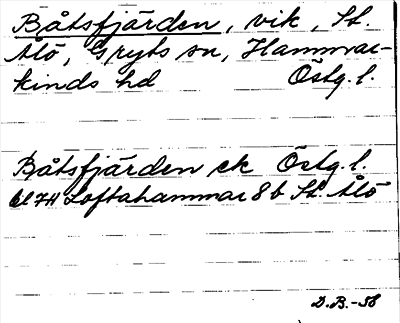 Båtsfjärden, vik, St.
Ålö, Gryts sn, Hammar-
kinds hd Östg. l.
Båtsfjärden ek Östg. l.
bl 74 Loftahammar 8b St. Ålö
D.B.-56